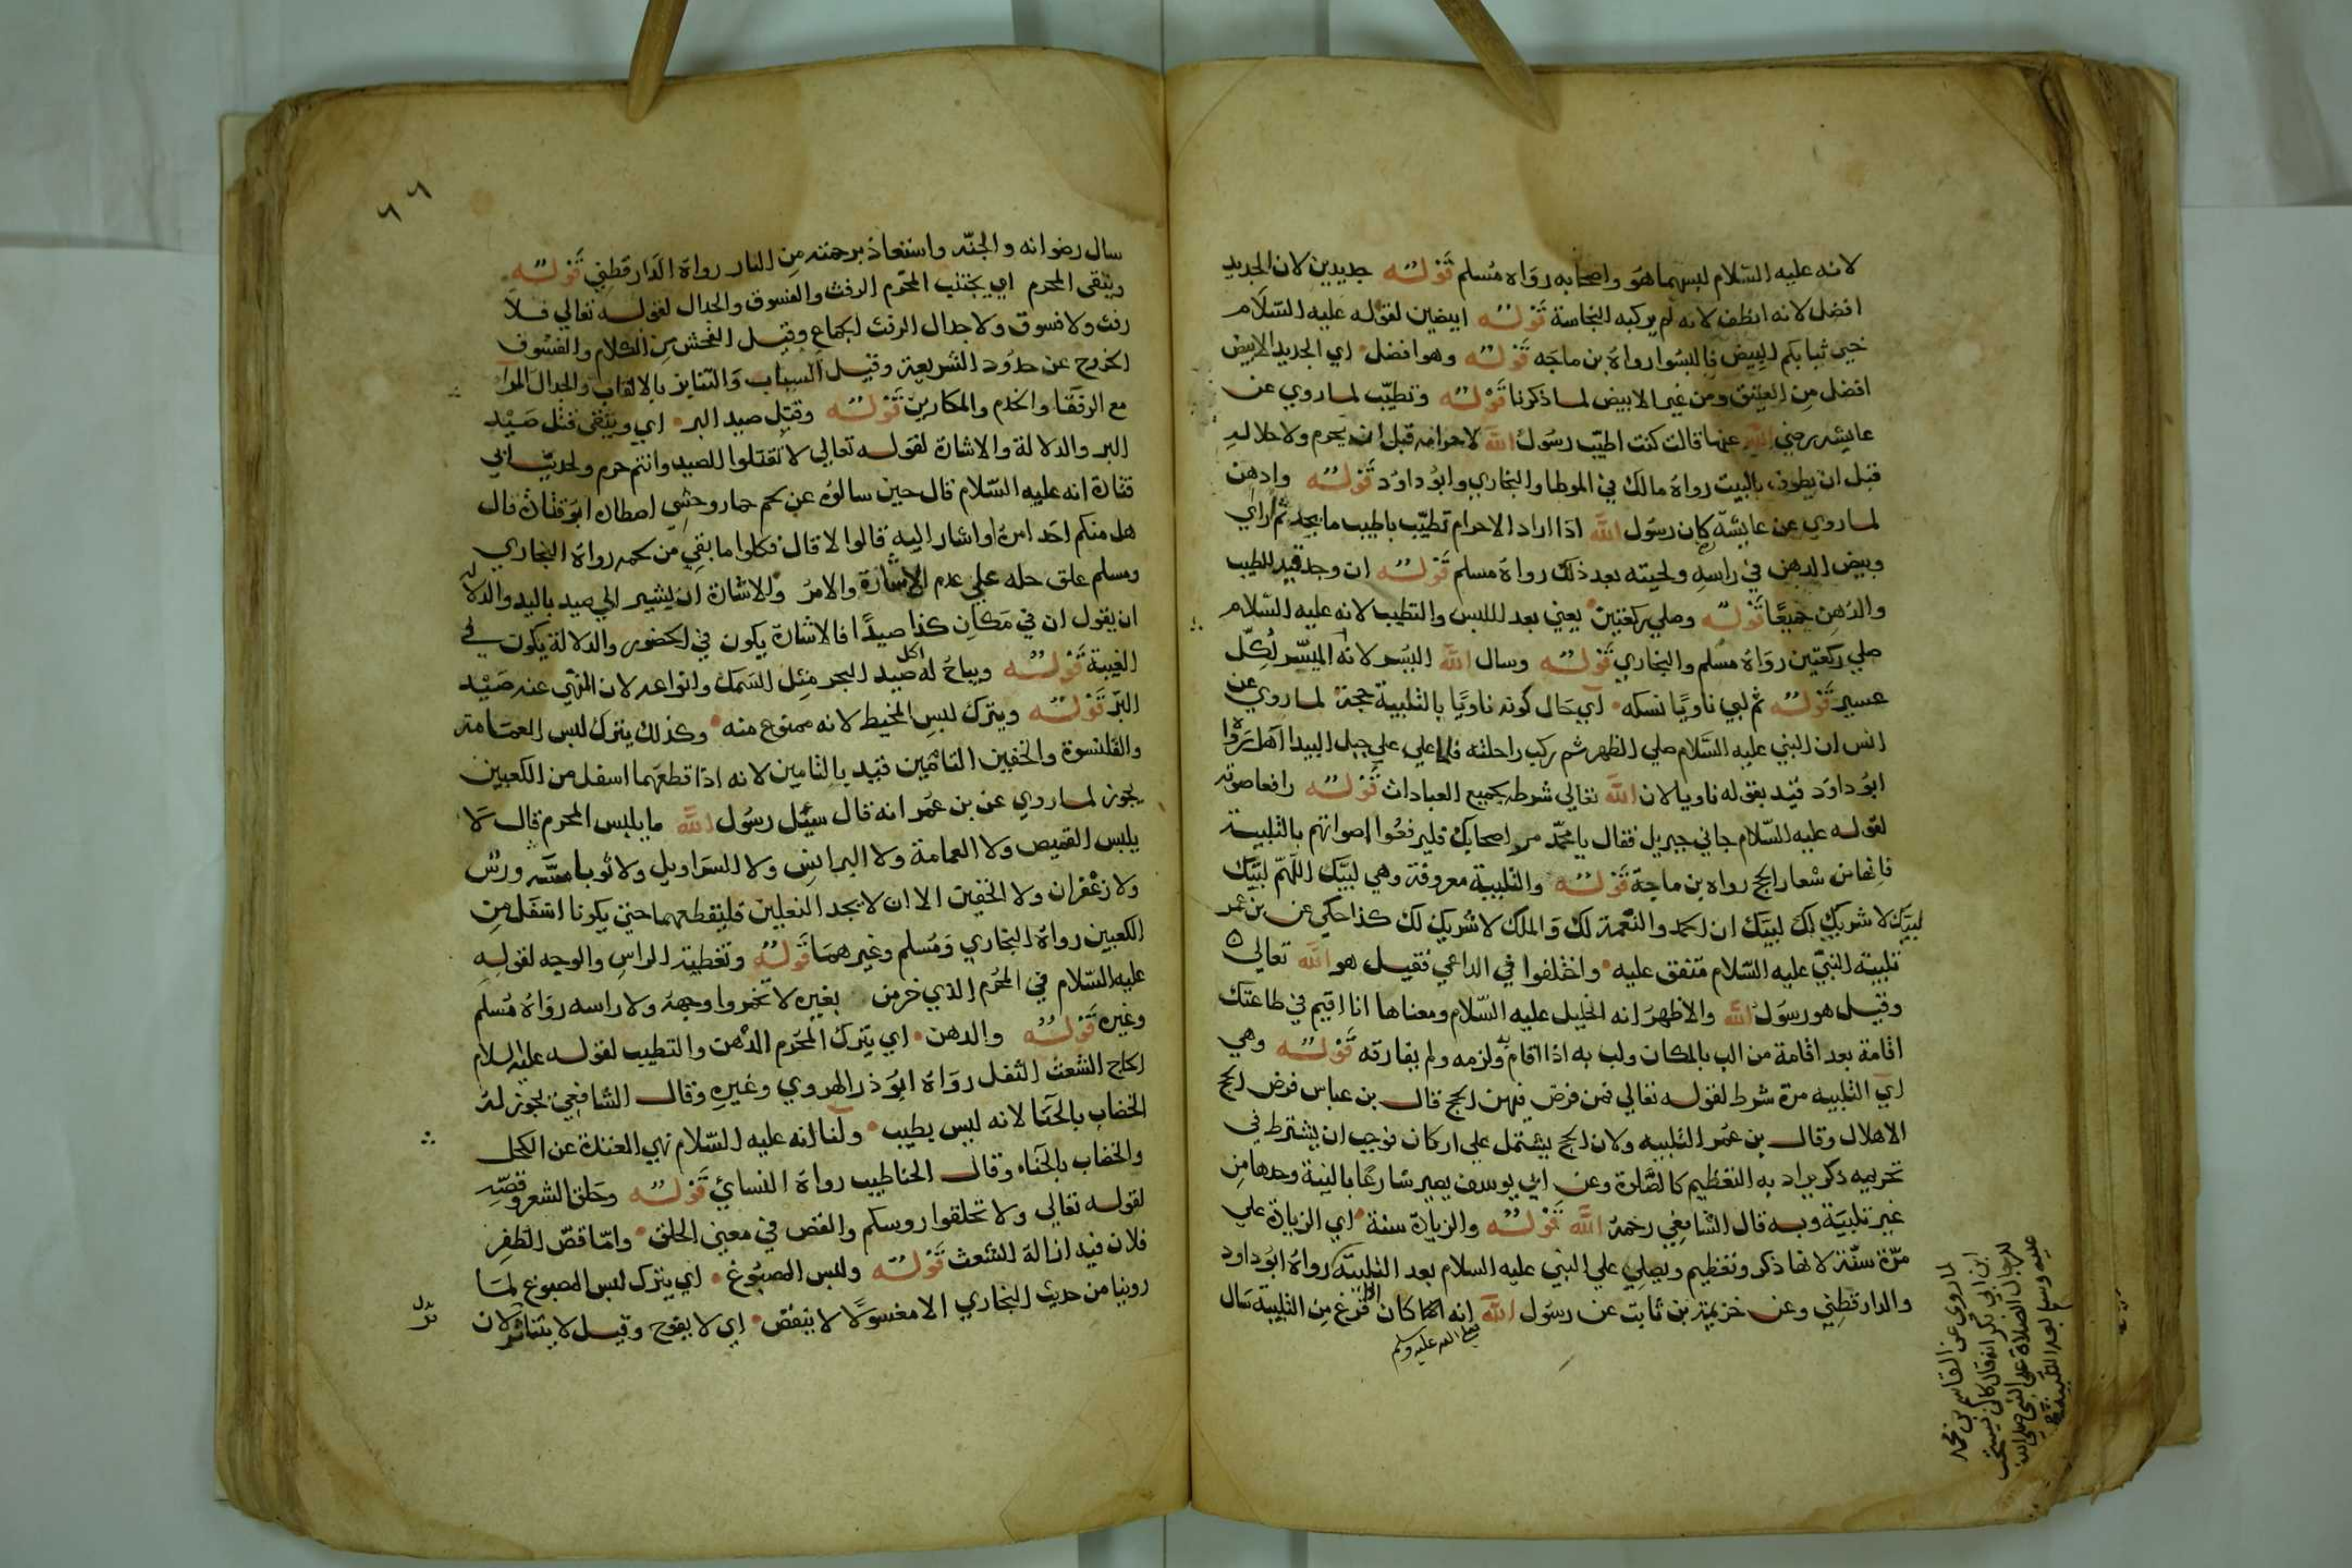 لانه عليه السلام لبسهما هو واصحابه رواه مسلم قوله جديدين لان الجديد
افضل لانه انظف لانه لم يركبه النجاسة قوله ابيضين لقوله عليه السلام
خير ثيابكم البيض فالبسوا رواه بن ماجه قوله وهو افضل اي الجديد الابيض
افضل من العتيق ومن غير الابيض لما ذكرنا قوله وتطيب لما روي عن
عايشه رضي الله عنها قالت كنت اطيب رسول الله لاحرامه قبل ان يحرم ولاحلاله
قبل ان يطوف بالبيت رواه مالك في الموطا والبخاري وابو داود قوله وادهن
لما روي عن عايشة كان رسول الله اذا اراد الاحرام تطيب باطيب ما يجد ثم اراي
وبيض الدهن في راسه ولحيته بعد ذلك رواه مسلم قوله ان وجد قيد للطيب
والدهن جميعا قوله وصلي ركعتين يعني بعد اللبس والتطيب لانه عليه السلام
صلي ركعتين رواه مسلم والبخاري قوله وسال الله اليسر لانه الميسر لكل
عسير قوله ثم لبي ناويا نسكه اي حال كونه ناويا بالتلبية حجة لما روي عن
انس ان النبي عليه السلام صلي الظهر ثم ركب راحلته فلما علي علي جبل البيدا اهل رواه
ابو داود قيد بقوله ناويا لان الله تعالي شرطه بجميع العبادات قوله رافعا صوته
لقوله عليه السلام جاني جبريل فقال يا محمد مر اصحابك فليرفعوا اصواتهم بالتلبية
فانها من شعار الحج رواه بن ماجة قوله والتلبية معروفة وهي لبيك اللهم لبيك
لبيك لا شريك لك لبيك ان الحمد والنعمة لك والملك لا شريك لك كذا حكي عن بن عمر
تلبية النبي عليه السلام متفق عليه واختلفوا في الداعي فقيل هو الله تعالي
وقيل هو رسول الله والاظهر انه الخليل عليه السلام ومعناها انا اقيم في طاعتك
اقامة بعد اقامة من الب بالمكان ولب به اذا اقام ولزمه ولم يفارقه قوله وهي
اي التلبيه مرة شرط لقوله تعالي فمن فرض فيهن الحج قال بن عباس فرض الحج
الاهلال وقال بن عمر التلبيه ولان الحج يشتمل علي اركان فوجب ان يشترط في
تحريمه ذكر يراد به التعظيم كالصلاة وعن ابي يوسف يصير شارعا بالنية وحدها من
غير تلبية وبه قال الشافعي رحمه الله قوله والزيادة سنة اي الزيادة علي
مرة سنة لانها ذكر وتعظيم ويصلي علي النبي عليه السلام بعد التلبية رواه ابو داود
والدارقطني وعن خزيمة بن ثابت عن رسول الله انه كان اذا فرغ من التلبية سال
صلي الله عليه وسلم
لما روي عن القاسم بن محمد
ابن ابي بكر انه قال كان يستحب
للرجال الصلاة علي النبي صلي الله
عليه وسلم بعد التلبية
٦٦
سال رضوانه والجنه واستعاذ برحمته من النار رواه الدارقطني قوله
ويتقي المحرم اي يجتنب المحرم الرفث والفسوق والجدال لقوله تعالي فلا
رفث ولا فسوق ولا جدال الرفث الجماع وقيل الفحش من الكلام والفسوق
الخروج عن حدود الشريعة وقيل السباب والتنابز بالالقاب والجدال المرا
مع الرفقا والخدم والمكارين قوله وقتل صيد البر اي ويتقي قتل صيد
البر والدلالة والاشارة لقوله تعالي لا تقتلوا الصيد وانتم حرم ولحديث ابي
قتادة انه عليه السلام قال حين سالوه عن لحم حمار وحشي اصطاده ابو قتادة قال
هل منكم احد امره او اشار اليه قالوا لا قال فكلوا ما بقي من لحمه رواه البخاري
ومسلم علق حله علي عدم الاشارة والامر والاشارة ان يشير الي صيد باليد والدلالة
ان يقول ان في مكان كذا صيدا فالاشارة يكون في الحضور والدلالة يكون في
الغيبة قوله ويباح له اكل صيد البحر مثل السمك وانواعه لان المنهي عنه صيد
البر قوله ويترك لبس المخيط لانه ممنوع منه وكذلك يترك لبس العمامة
والقلنسوة والخفين التامين قيد بالتامين لانه اذا قطعهما اسفل من الكعبين
يجوز لما روي عن بن عمر انه قال سئل رسول الله ما يلبس المحرم قال لا
يلبس القميص ولا العمامة ولا البرانس ولا السراويل ولا ثوبا مسه ورس
ولا زعفران ولا الخفين الا ان لا يجد النعلين فليقطعهما حتي يكونا اسفل من
الكعبين رواه البخاري ومسلم وغيرهما قوله وتغطية الراس والوجه لقوله
عليه السلام في المحرم الذي خر من بعيره لا تخمروا وجهه ولا راسه رواه مسلم
وغيره قوله والدهن اي يترك المحرم الدهن والتطيب لقوله عليه السلام
الحاج الشعث التفل رواه ابو ذر الهروي وغيره وقال الشافعي يجوز له
الخضاب بالحنا لانه ليس بطيب ولنا انه عليه السلام نهي المعتدة عن الكحل
والخضاب بالحناء وقال الحنا طيب رواه النسائي قوله وحلق الشعر وقصه
لقوله تعالي ولا تحلقوا روسكم والقص في معني الحلق واما قص الظفر
فلان فيه ازالة الشعث قوله ولبس المصبوغ اي يترك لبس المصبوغ لما
روينا من حديث البخاري الا مغسولا لا ينفض اي لا يفوح وقيل لا يتناثر لان